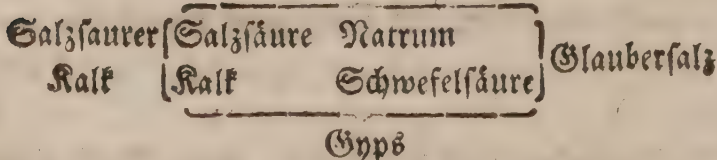 Salzſaurer Salzſäure Natrum
Kalk Kalk Schwefelſäure Glauberſalz
Gyps